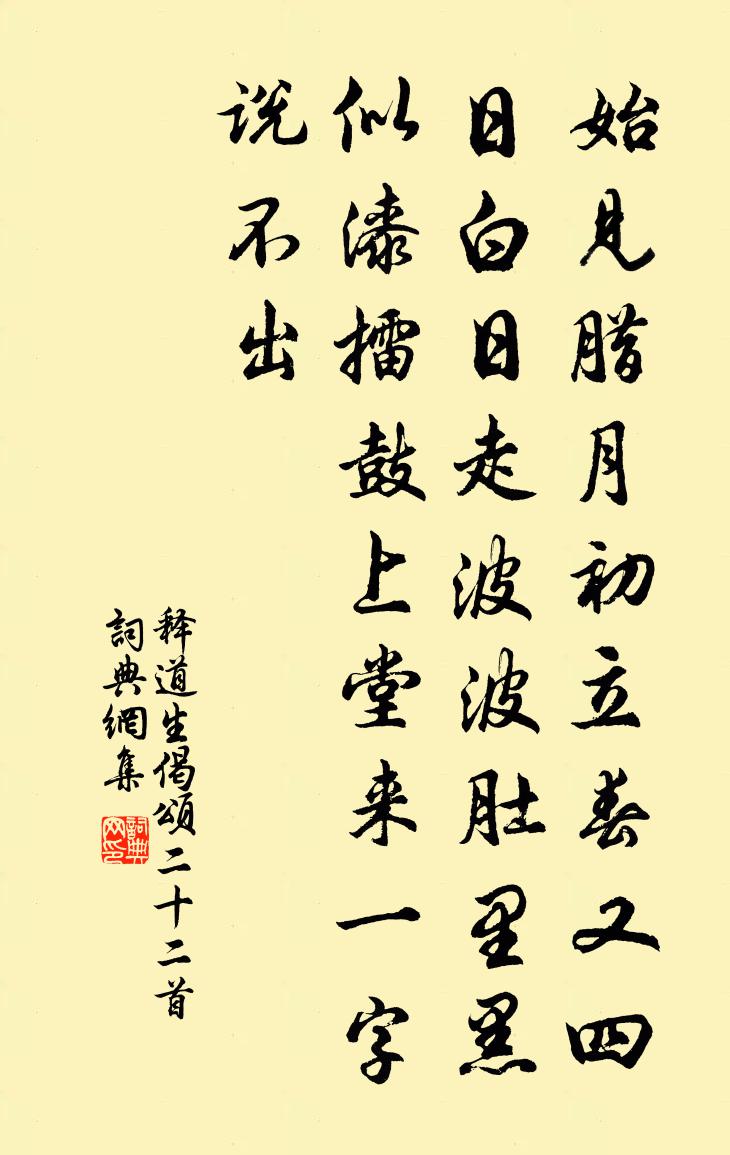 始见腊月初立春又四
日白日走波波肚里黑
似漆擂鼓上堂来一字
说不出
释道生偈頌二十二首
詞典網集
詞典网印